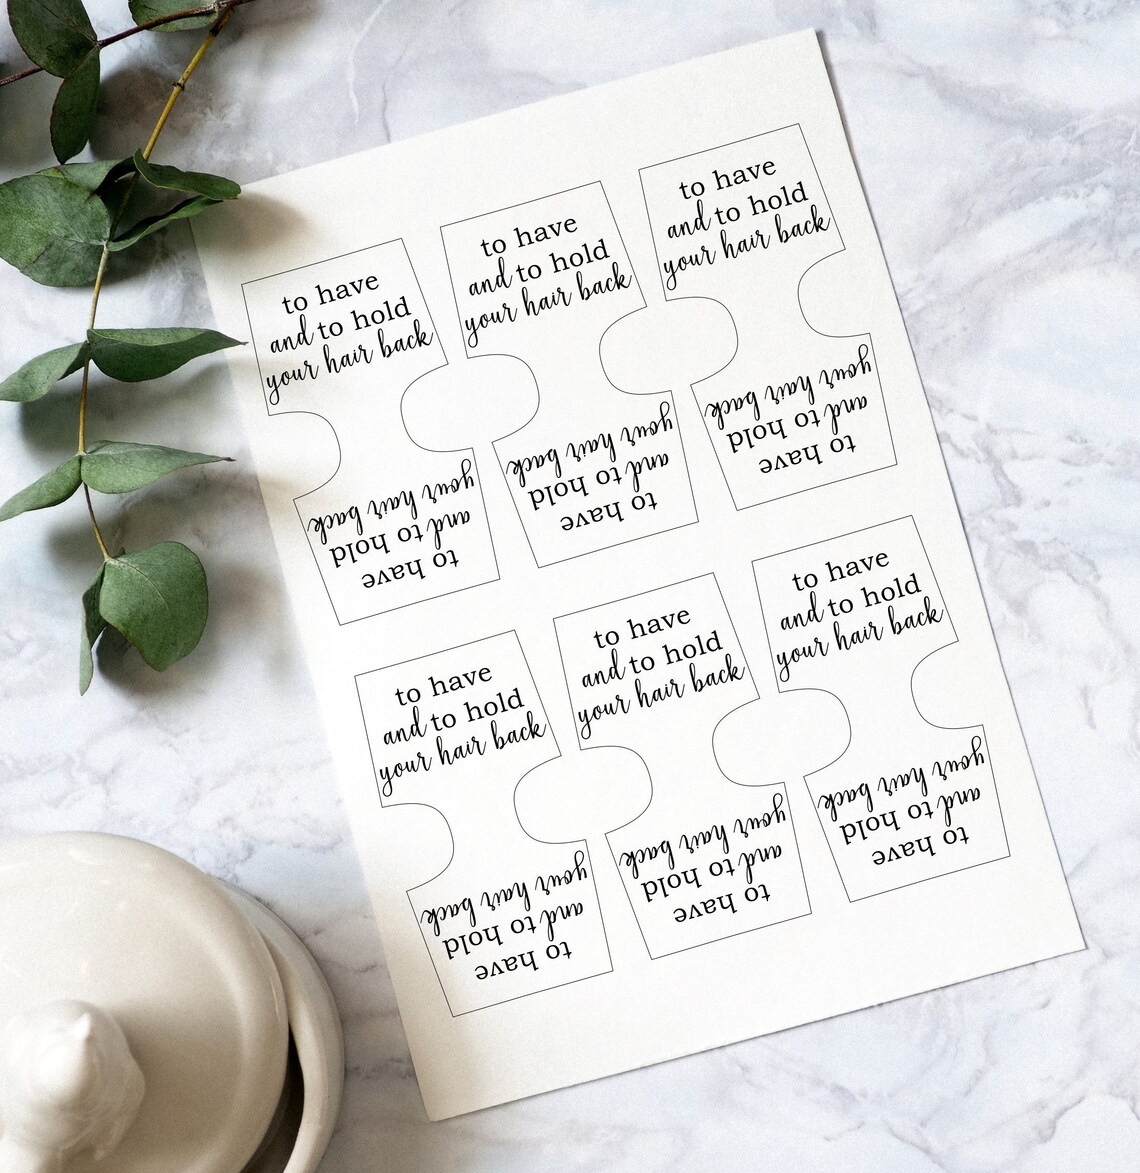 to have
and to hold
your hair back
your hair back
and to hold
to have
to have
and to hold
your hair back
your hair back
and to hold
to have
to have
and to hold
your hair back
your hair back
and to hold
to have
to have
and to hold
your hair back
your hair back
and to hold
to have
to have
and to hold
your hair back
your hair back
and to hold
to have
to have
and to hold
your hair back
your hair back
and to hold
to have